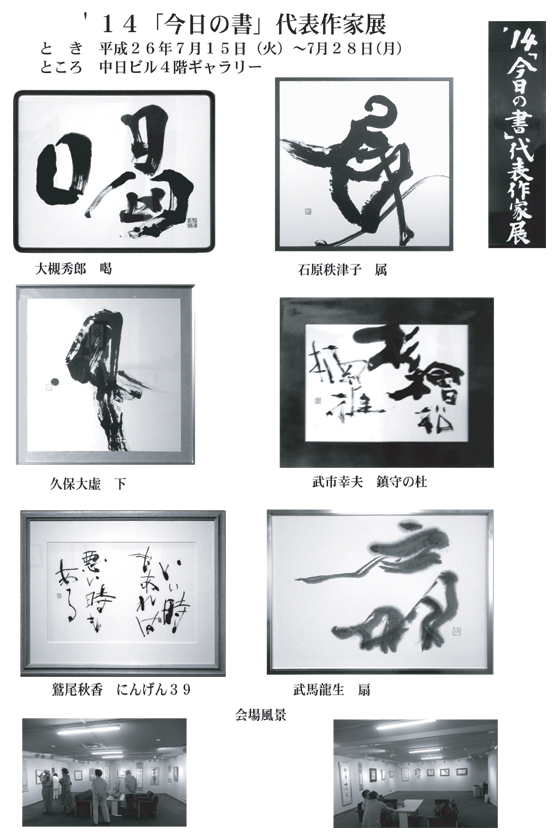 '１４「今日の書」代表作家展
とき　平成２６年７月１５日（火）～7月２８日(月)
ところ　中日ビル４階ギャラリー
'14「今日の書」代表作家展
喝
大槻秀郎　喝
石原秩津子　属
久保大虚　下
武市幸夫　鎮守の杜
いい時
もあれば
悪い時も
ある
鷲尾秋香　にんげん３９
武馬龍生　扇
会場風景